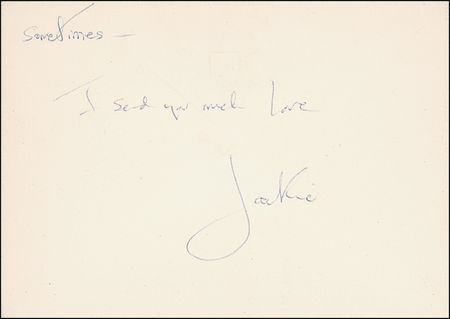 sometimes —
I send you much love
Jackie